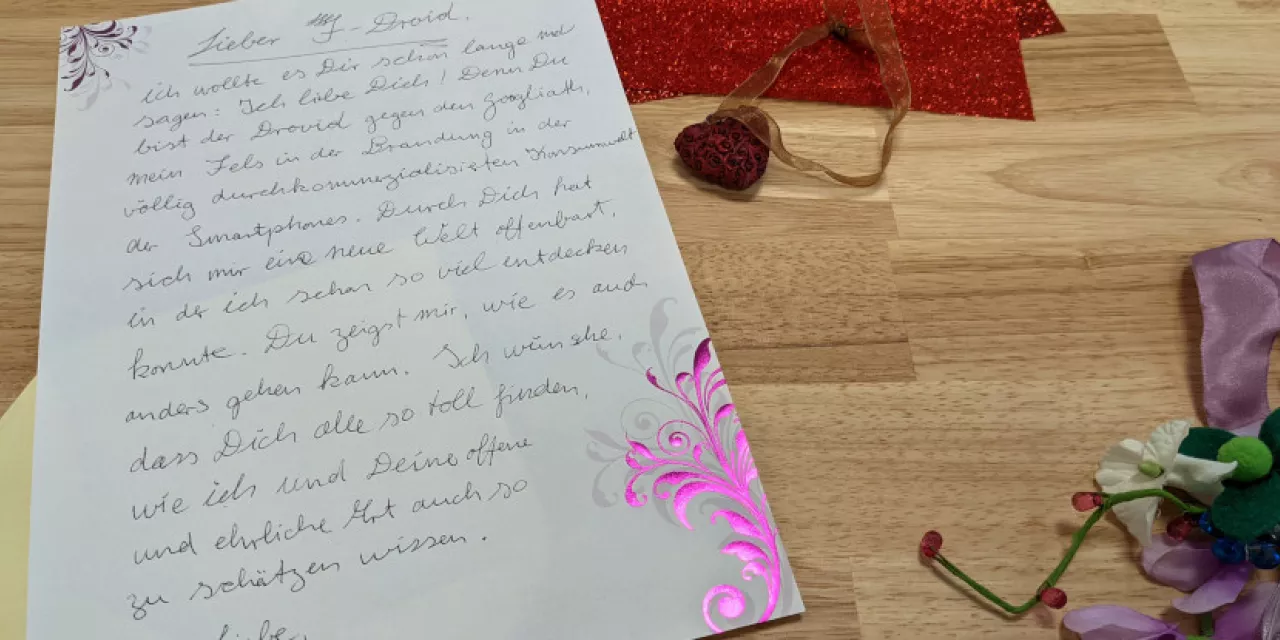 Lieber F-Droid.
ich wollte es Dir schon lange mal
sagen: Ich liebe Dich! Denn Du
bist der Drovid gegen den googliath,
mein Fels in der Brandung in der
völlig durchkommerzialisierten Konsumwelt
der Smartphones. Durch Dich hat
sich mir eine neue Welt offenbart,
in der ich schon so viel entdecken
konnte. Du zeigst mir, wie es auch
anders gehen kann. Ich wünsche,
dass Dich alle so toll finden,
wie ich und Deine offene
und ehrliche Art auch so
zu schätzen wissen.